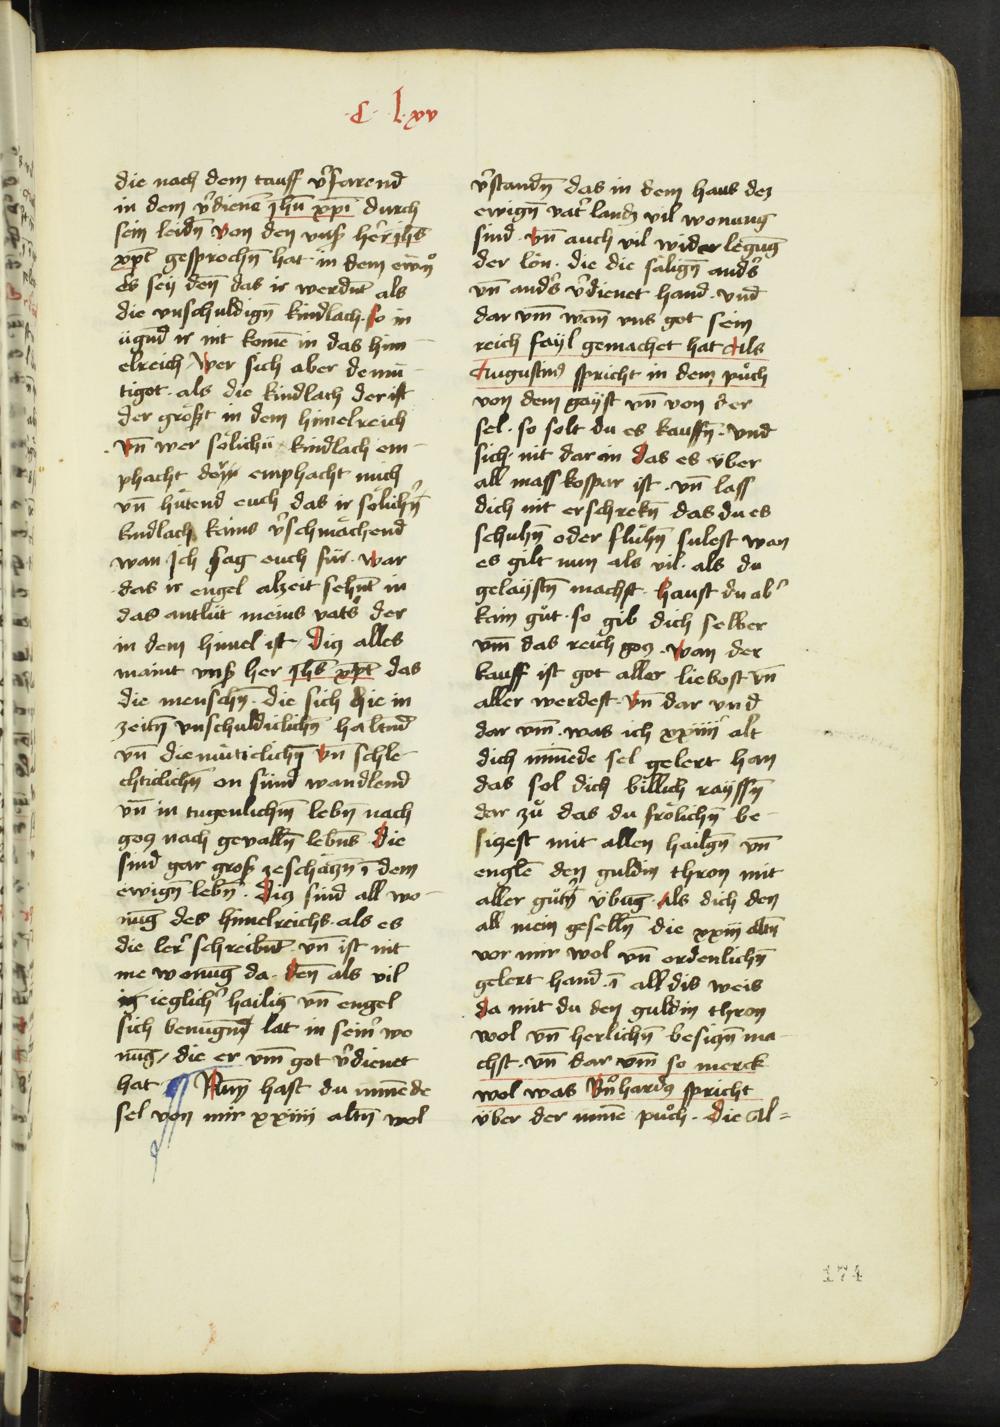 ·C· l·xv
die nach dem tauff v̾farend
in dem v̾dienē jhū xp̄i durch
sein leidn̄ von den vnß her̾ jhs̄
xp̄t gesprochn̄ hat· in dem ewn̄
Es sey den̄ das ir werdnt als
die vnschuldign̄ kindlach· so in
ügnd ir nit komē in das him
elreich Wer sich aber demü-
tigot· als die kindlach der ist
der größt in dem himelreich
Vn̄ wer sölichü kindlach em-
phacht der emphacht mich
vn̄ hütend euch das ir sölichn̄
kindlach kains v̾schmächend
wan Ich sag euch für· war
das ir engel alzeit sehnt in
das antlüt meins vats̾ der
in dem himel ist· Diß alles
maint vnß her jhs̄ xp̄t das
die menschn̄· die sich hie in
zeitn̄ vnschuldiclichn̄ haltnd
vn̄ diemüticlichn̄ vn̄ schle-
chticlichn̄ on sünd wandlend
vn̄ in tugenlichm̄ lebn̄ nach
gotz nach gevalln̄ lebns̄ Die
sind gar groß zeschätzn̄ ī dem
ewign̄ lebn̄· Diß sind all wo-
nūg des himelreichs· als es
die ler̾ schreibnt· vn̄ ist nit
me wonūg da· den̄ als vil
ieglich̾ hailig vn̄ engel
sich benügnd lat in sein̾ wo
nūg / die er vm̄ got v̾dienet
hat Nun̄ hast du minēde
sel von mir xxiiii altn̄ wol
v̾standn̄ das in dem haus dez
ewign̄ vat̾ landz vil wonung
sind· Vn̄ auch vil wider legūg
der lön· die die sälign̄ and̾s
vn̄ and̾s v̾dienet hand· vnd
dar vm̄ wan̄ vns got sein
reich fayl gemachet hat Als
Augustin9 spricht in dem půch
von dem gayst vn̄ von der
sel· so solt du es kauffn̄· vnd
sich· nit dar in das es über
all mass kospar ist· vn̄ lass
dich nit erschrekn̄ das du es
schuhn̄ oder fluhn̄ sulest wan
es gilt nun als vil· als du
gelaystn̄ machst· haust du ab̾
kain gůt· so gib dich selber
vm̄ das reich gotz· wan der
kauff ist got aller liebost vn̄
aller werdest· Vn̄ dar vnd
dar vm̄· was ich xxiiii alt
dich minēde sel gelert han
das sol dich billich rayssn̄
dar zů das du frölichn̄ be-
sitzest mit allen hailgn̄ vn̄
englē den guldin thron mit
aller gůtn̄ übūg· Als dich den
all mein geselln̄ die xxiii altn̄
vor mir wol vn̄ ordenlichn̄
gelert hand· ī all dis weis
da mit du den guldin thron
wol vn̄ herlichn̄ besitzn̄ ma-
chst· vn̄ dar vm̄ so merck
wol was Bn̾hard9 spricht
über der minē půch· Die Al=
174